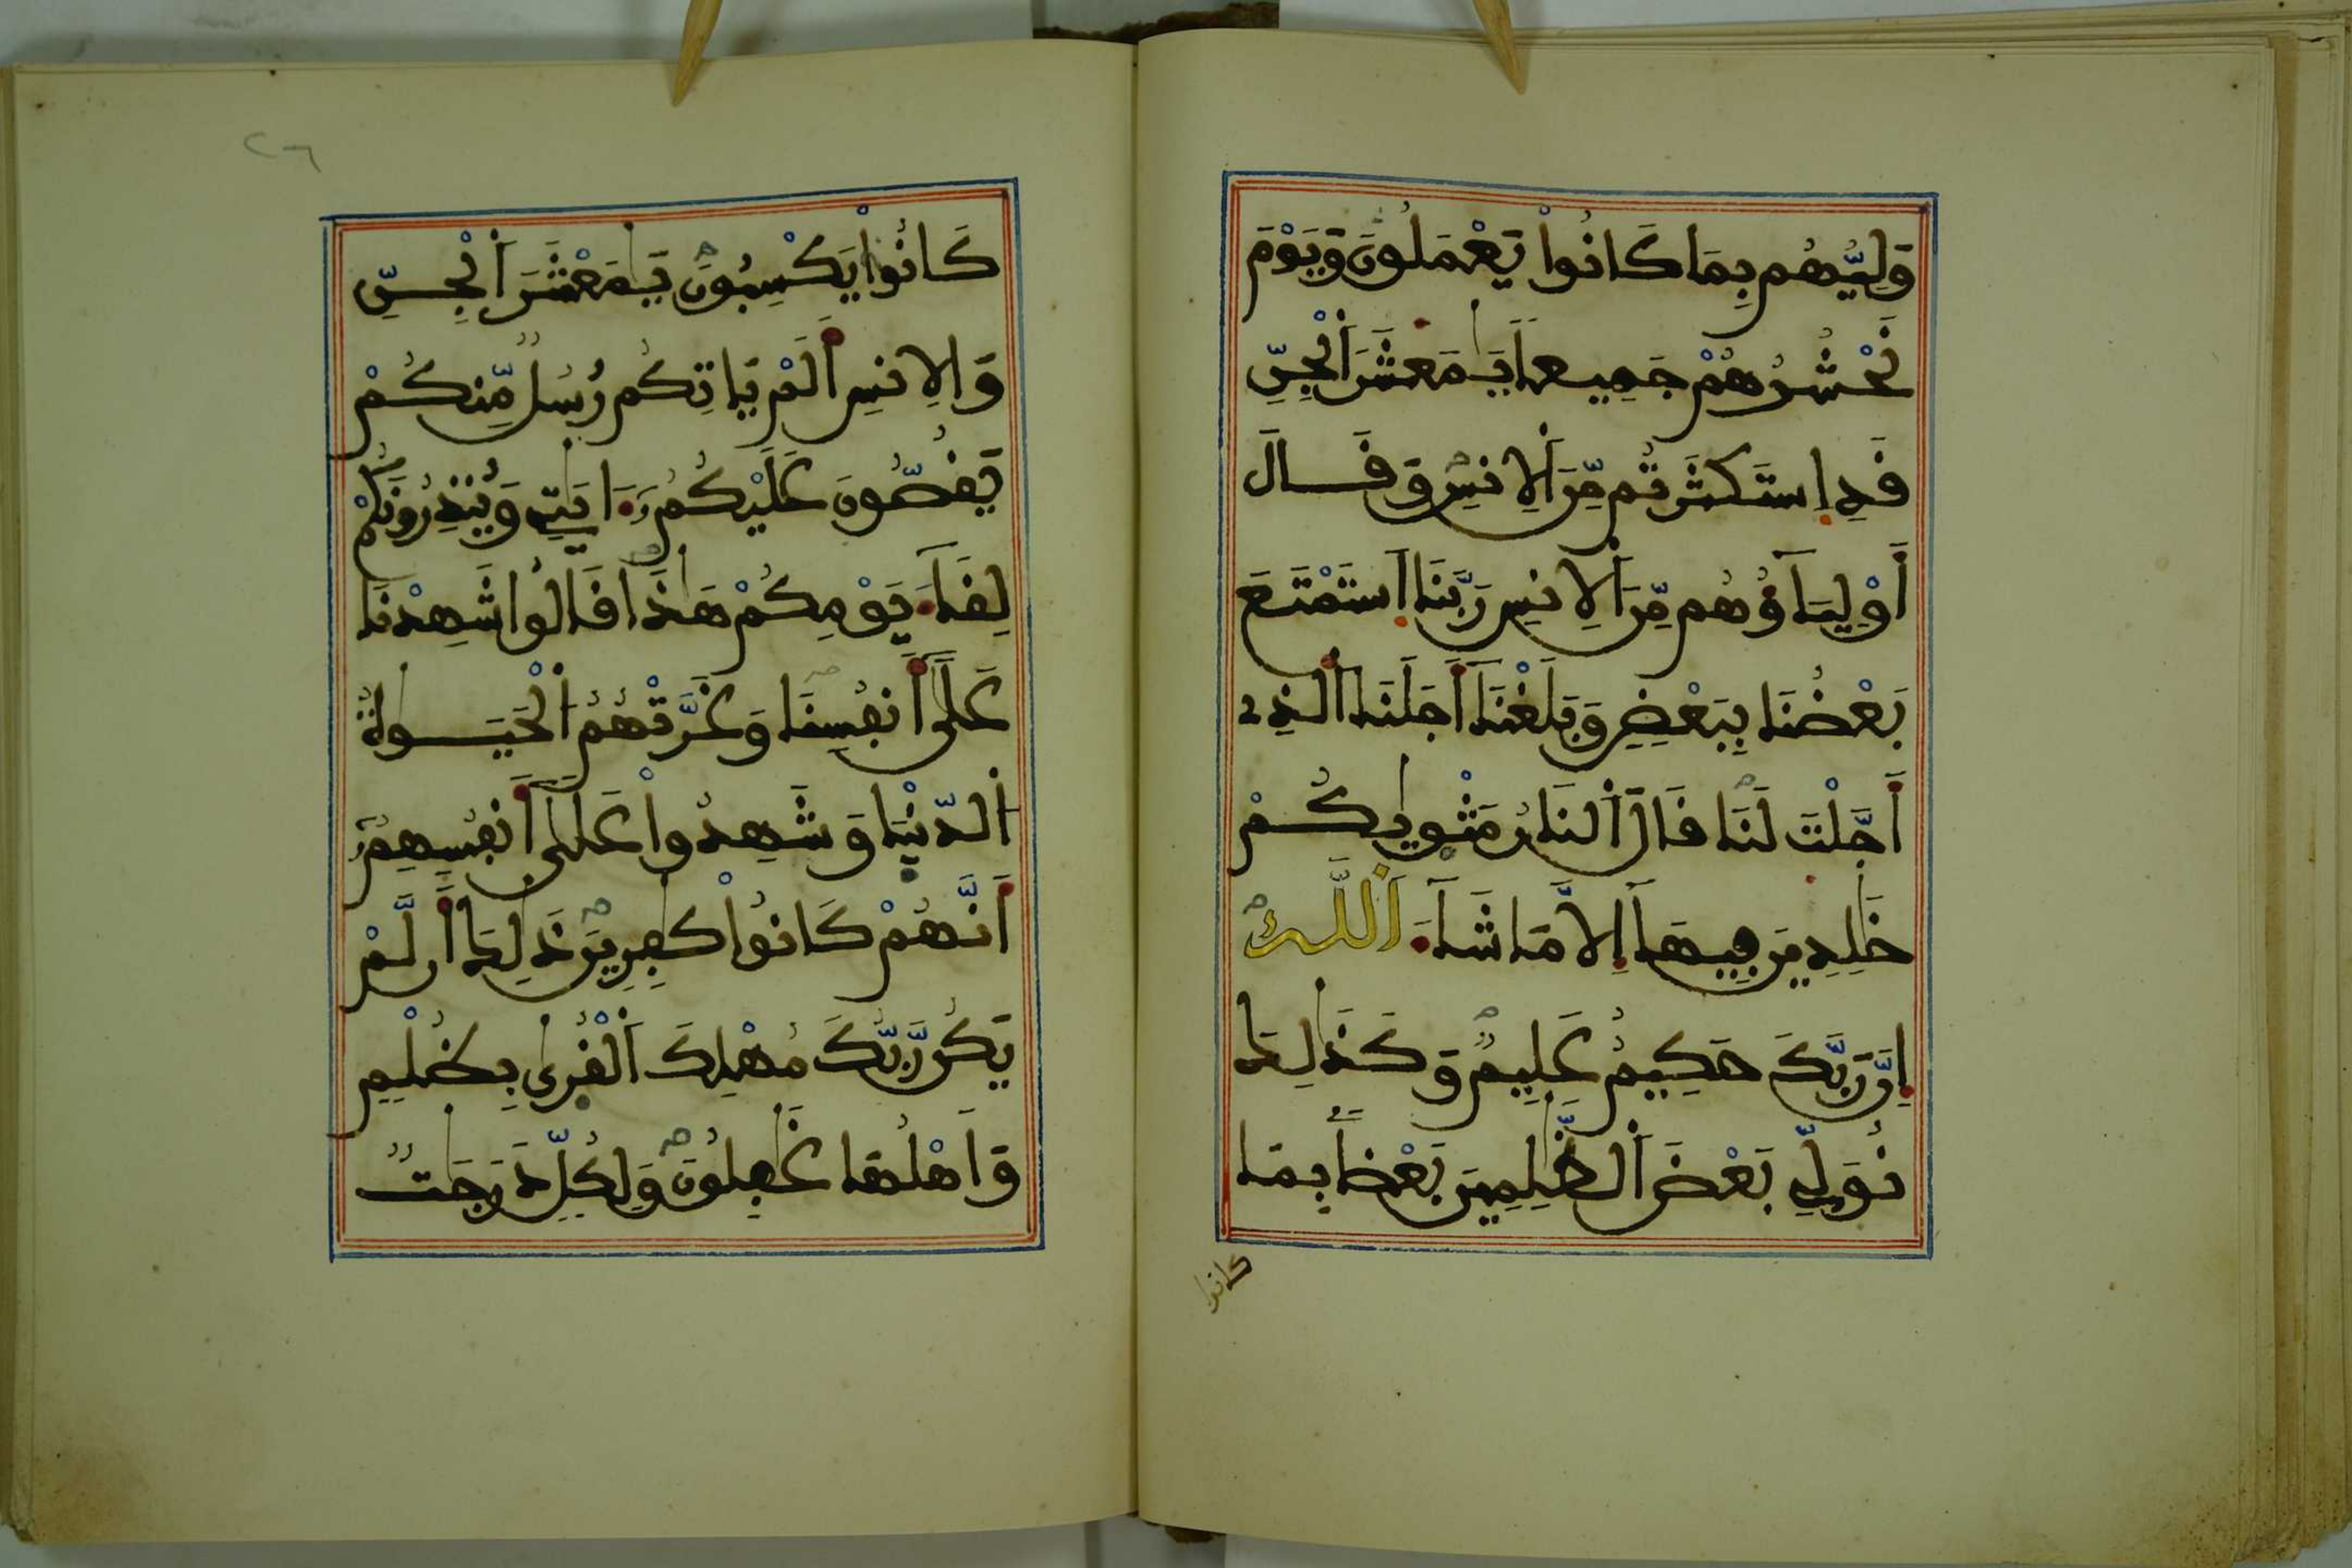 وَلِيُّهُم بِمَا كَانُواْ يَعْمَلُونَ وَيَوْمَ
نَحْشُرُهُمْ جَمِيعاً يَٰمَعْشَرَ اَ۬لْجِنِّ
قَدِ اِ۪سْتَكْثَرْتُم مِّنَ اَ۬لِانسِ وَقَالَ
أَوْلِيَآؤُهُم مِّنَ اَ۬لِانسِ رَبَّنَا اَ۪سْتَمْتَعَ
بَعْضُنَا بِبَعْضٍ وَبَلَغْنَآ أَجَلَنَا اَ۬لذِے
أَجَّلْتَ لَنَا قَالَ اَ۬لنَّارُ مَثْوٜيٰكُمْ
خَٰلِدِينَ فِيهَآ إِلَّا مَا شَآءَ اَ۬للَّهُ
إِنَّ رَبَّكَ حَكِيمٌ عَلِيمٌ وَكَذَٰلِكَ
نُوَلِّے بَعْضَ اَ۬لظَّٰلِمِينَ بَعْضاً بِمَا
كانوا
٢٦
كَانُواْ يَكْسِبُونَ يَٰمَعْشَرَ اَ۬لْجِنِّ
وَالِانسِ أَلَمْ يَاتِكُمْ رُسُلٌ مِّنكُمْ
يَقُصُّونَ عَلَيْكُمُۥٓ ءَايَٰتِے وَيُنذِرُونَكُمْ
لِقَآءَ يَوْمِكُمْ هَٰذَا قَالُواْ شَهِدْنَا
عَلَىٰٓ أَنفُسِنَا وَغَرَّتْهُمُ اَ۬لْحَيَوٰةُ
اُ۬لدُّنْيَا وَشَهِدُواْ عَلَىٰٓ أَنفُسِهِمُۥٓ
أَنَّهُمْ كَانُواْ كَٰفِرِينَ ذَٰلِكَ أَن لَّمْ
يَكُن رَّبُّكَ مُهْلِكَ اَ۬لْقُرٜىٰ بِظُلْمٍ
وَأَهْلُهَا غَٰفِلُونَ وَلِكُلٍّ دَرَجَٰتٌ